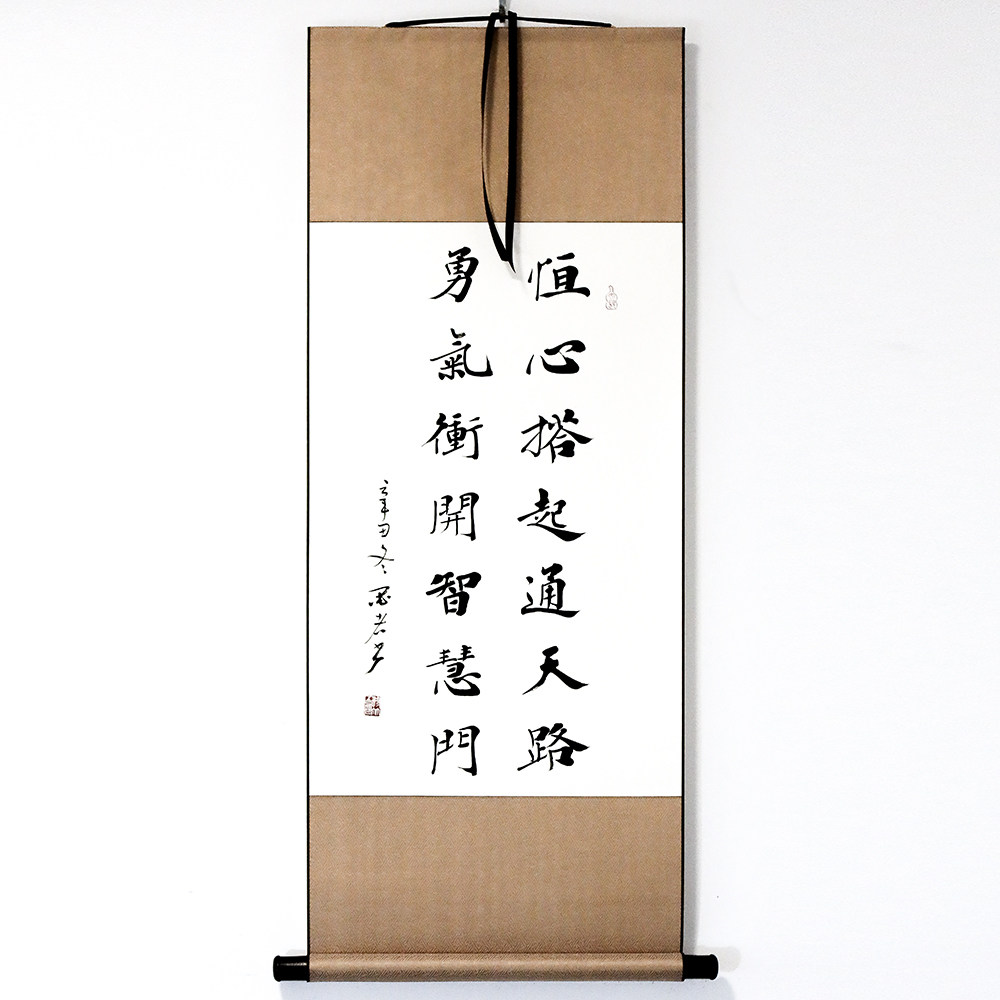 恒心搭起通天路
勇氣衝開智慧門
辛丑冬